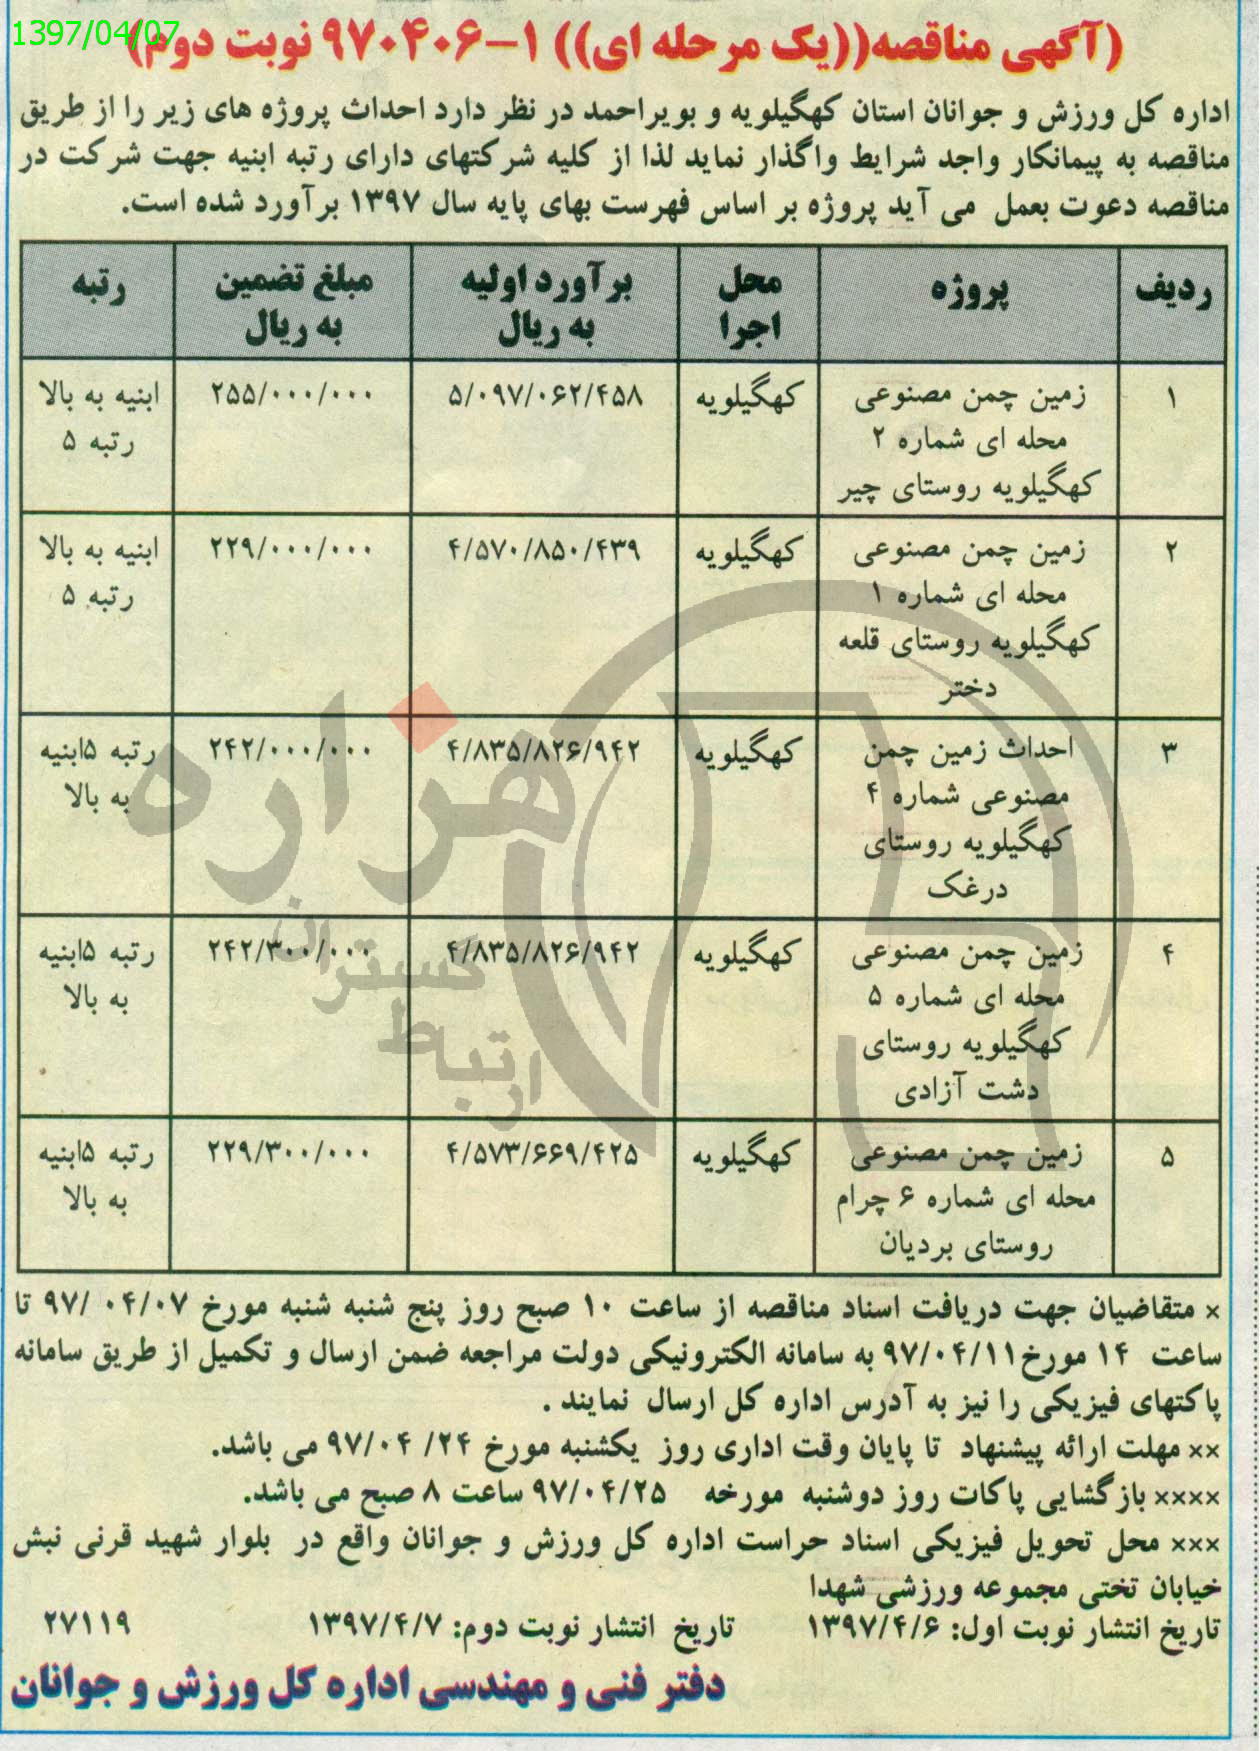 1397/04/07
(آگهی مناقصه((یک مرحله ای)) ۱-۹۷۰۴۰۶ نوبت دوم)
اداره کل ورزش و جوانان استان کهگیلویه و بویراحمد در نظر دارد احداث پروژه های زیر را از طریق
مناقصه به پیمانکار واجد شرایط واگذار نماید لذا از کلیه شرکتهای دارای رتبه ابنیه جهت شرکت در
مناقصه دعوت بعمل می آید پروژه بر اساس فهرست بهای پایه سال ۱۳۹۷ برآورد شده است.
ردیف پروژه محل اجرا برآورد اولیه به ریال مبلغ تضمین به ریال رتبه
۱ زمین چمن مصنوعی کهگیلویه ۵/۰۹۷/۰۶۲/۴۵۸ ۲۵۵/۰۰۰/۰۰۰ ابنیه به بالا
محله ای شماره ۲ رتبه ۵
کهگیلویه روستای چیر
۲ زمین چمن مصنوعی کهگیلویه ۴/۵۷۰/۸۵۰/۴۳۹ ۲۲۹/۰۰۰/۰۰۰ ابنیه به بالا
محله ای شماره ۱ رتبه ۵
کهگیلویه روستای قلعه
دختر
۳ احداث زمین چمن کهگیلویه ۴/۸۳۵/۸۲۶/۹۴۲ ۲۴۲/۰۰۰/۰۰۰ رتبه ۵ابنیه
مصنوعی شماره ۴ به بالا
کهگیلویه روستای
درغک
۴ زمین چمن مصنوعی کهگیلویه ۴/۸۳۵/۸۲۶/۹۴۲ ۲۴۲/۳۰۰/۰۰۰ رتبه ۵ابنیه
محله ای شماره ۵ به بالا
کهگیلویه روستای
دشت آزادی
۵ زمین چمن مصنوعی کهگیلویه ۴/۵۷۳/۶۶۹/۴۲۵ ۲۲۹/۳۰۰/۰۰۰ رتبه ۵ابنیه
محله ای شماره ۶ چرام به بالا
روستای بردیان
هزاره
ارتباط گستران
× متقاضیان جهت دریافت اسناد مناقصه از ساعت ۱۰ صبح روز پنج شنبه شنبه مورخ ۰۴/۰۷ /۹۷ تا
ساعت ۱۴ مورخ۹۷/۰۴/۱۱ به سامانه الکترونیکی دولت مراجعه ضمن ارسال و تکمیل از طریق سامانه
پاکتهای فیزیکی را نیز به آدرس اداره کل ارسال نمایند .
×× مهلت ارائه پیشنهاد تا پایان وقت اداری روز یکشنبه مورخ ۲۴/ ۹۷/۰۴ می باشد.
×××× بازگشایی پاکات روز دوشنبه مورخه ۹۷/۰۴/۲۵ ساعت ۸ صبح می باشد.
××× محل تحویل فیزیکی اسناد حراست اداره کل ورزش و جوانان واقع در بلوار شهید قرنی نبش
خیابان تختی مجموعه ورزشی شهدا
تاریخ انتشار نوبت اول: ۱۳۹۷/۴/۶ تاریخ انتشار نوبت دوم: ۱۳۹۷/۴/۷ ۲۷۱۱۹
دفتر فنی و مهندسی اداره کل ورزش و جوانان